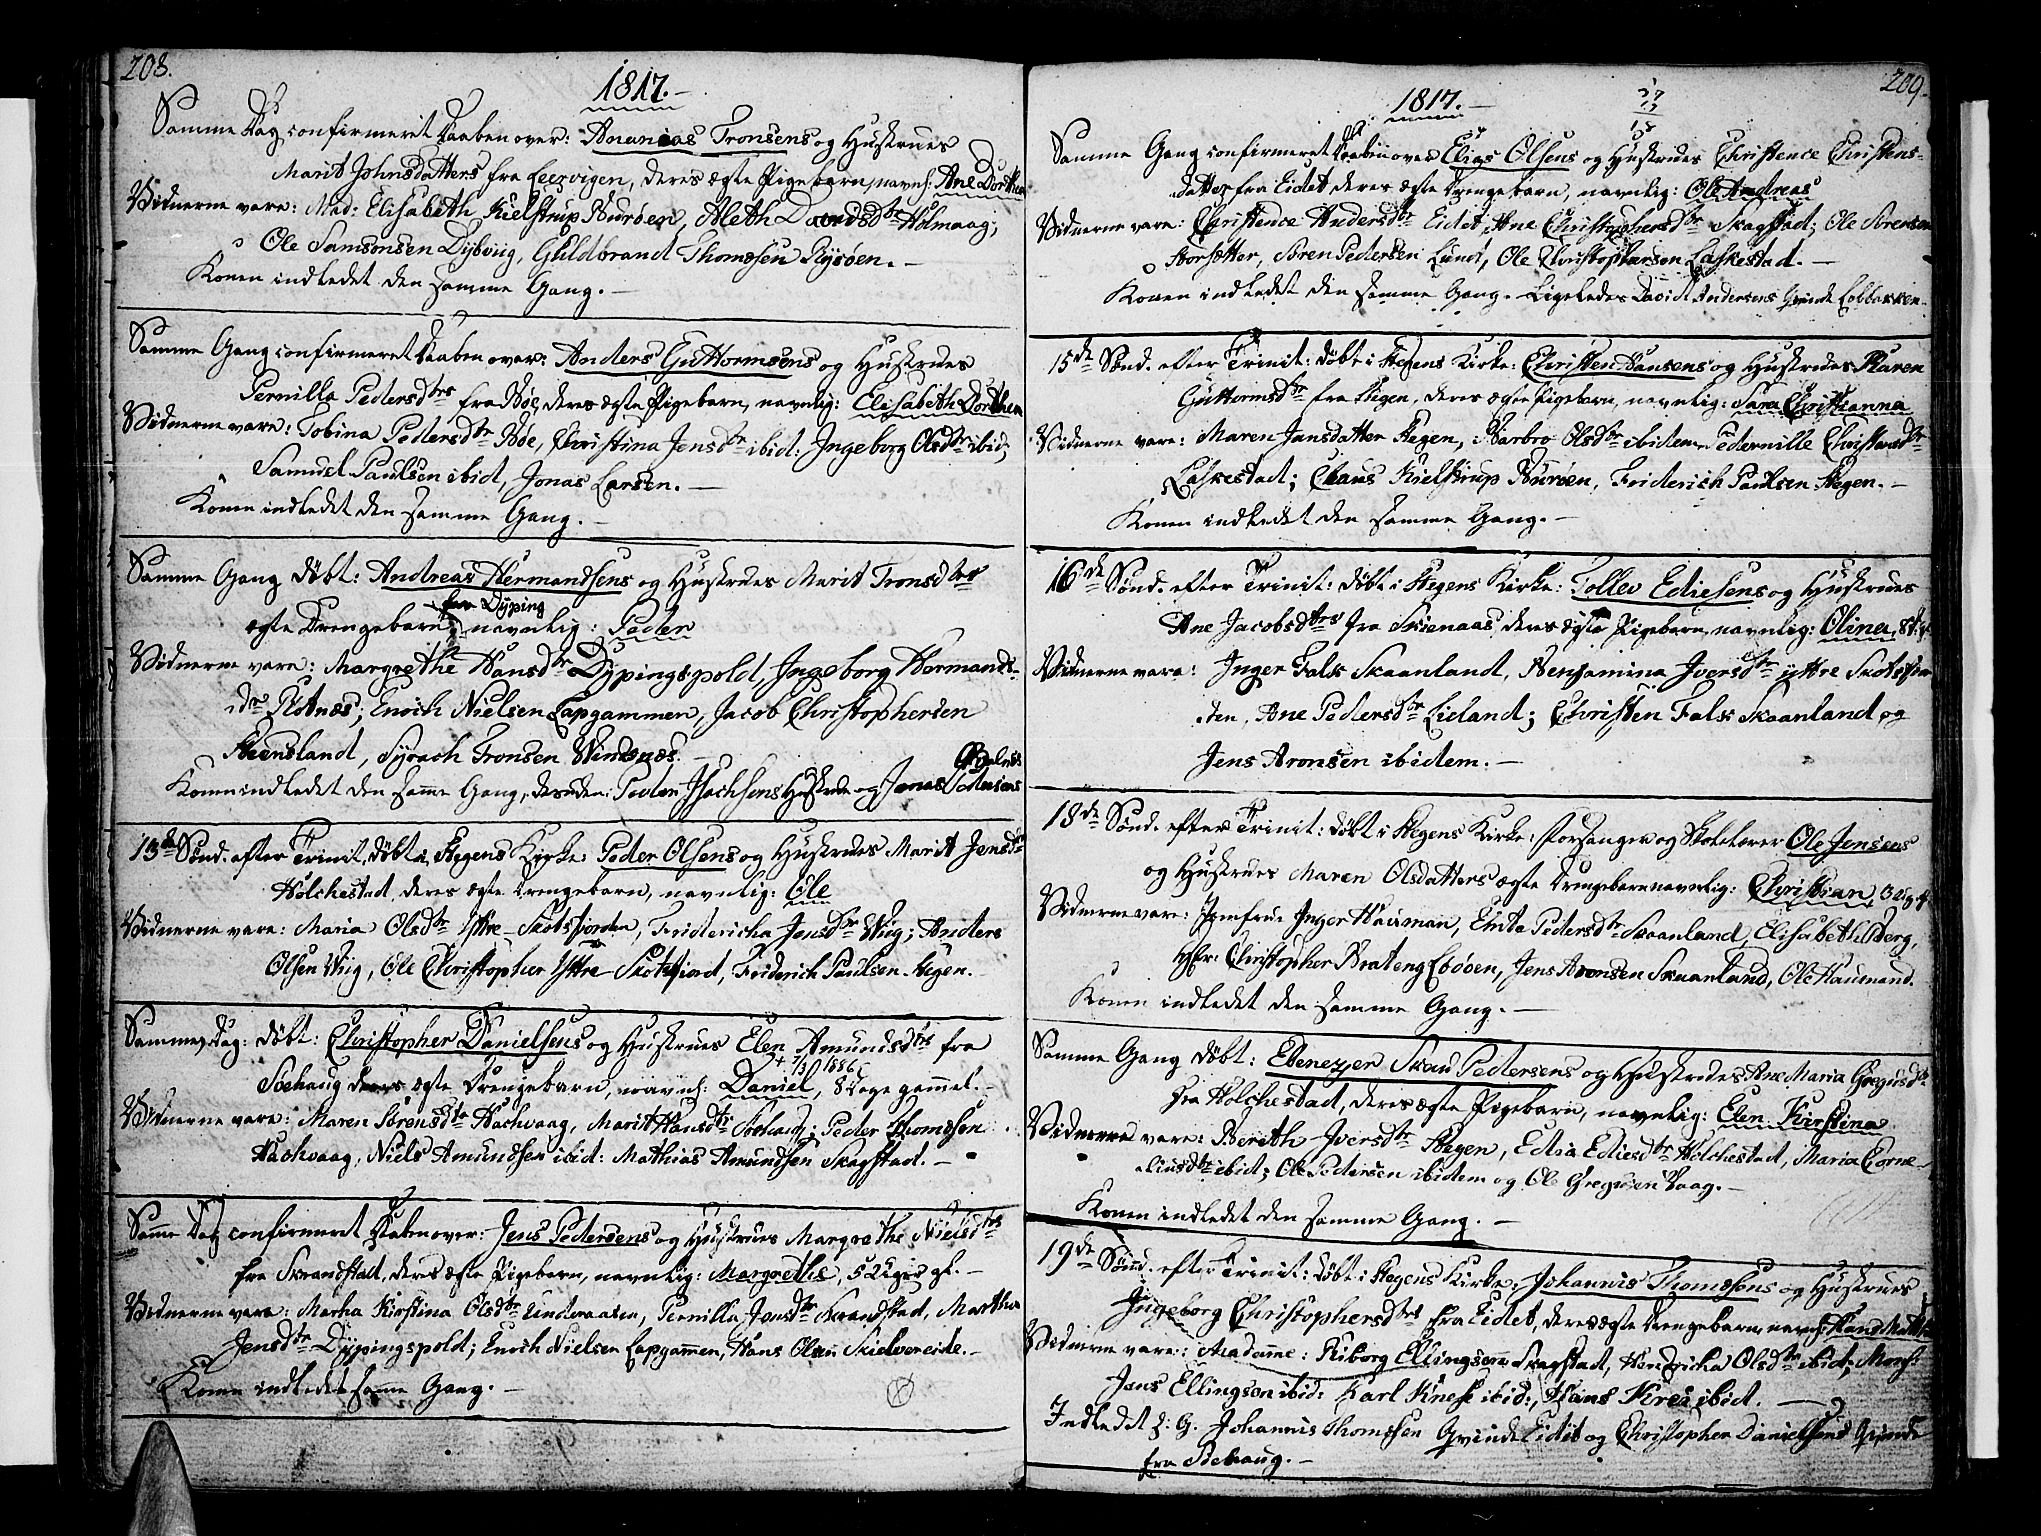 208.
1817.
Samme Dag confirmeret Daaben over: Ananias Tronsens og Hustrues
Marit Johnsdatters fra Leervigen, deres ægte Pigebarn, navnl: Ane Dorthea
Vidnerne vare: Mad: Elisabeth Kielstrup Burøen, Aleth Davidsdtr Holmaag,
Ole Samsonsen Dybvig, Guldbrand Thomesen Rysøen.
Konen indledet den samme Gang.
Samme Gang confirmeret Daaben over: Anders Guttormsens og Hustrues
Pernilla Pedersdtrs fra Bøe, deres ægte Pigebarn, navnlig: Elisabeth Dorthea
Vidnerne vare: Tobina Pedersdtr Bøe, Christina Jensdtr ibid: Ingeborg Olsdtr ibid;
Samuel Paulsen ibid, Jonas Larsen.
Konen indledet den samme Gang.
Samme Gang døbt: Andreas Hermandsens og Hustrues Marit Tronsdtrs
fra Dyping
ægte Drengebarn, navnlig: Peder
Vidnerne vare: Margrethe Hansdtr Dypingspold, Ingeborg Hermands-
dtr Rotnæs; Enoch Nielsen Lapgammen, Jacob Christophersen
Steensland, Syrach Tronsen Windnæs.
Konen indledet den samme Gang, desuden: Peder Isachsens Hustrue og Jonas
13de Sønd. efter Trinit. døbt i Stegens Kirke: Peder Olsens og Hustrues Marit Jensdtr
Holchestad, deres ægte Drengebarn, navnlig: Ole
Vidnerne vare: Maria Olsdtr Ittre-Skotsfjorden, Fridericha Jensdtr Wiig; Anders
Olsen Wiig, Ole Christopher Ittre Skotsfiord, Friderich Paulsen Stegen.
Samme Dag: døbt: Christopher Danielsens og Hustrues Elen Amundsdtrs fra
+ 7/3 1886
Soehaug deres ægte Drengebarn, navnl: Daniel, 8 Dage gammel.
Vidnerne vare: Maren Sørensdtr Hachvaag, Marit Hansdtr Soehaug; Peder Thomesen
Hachvaag, Niels Amundsen ibid: Mathias Amundsen Skagstad.
Samme Dag confirmeret Daaben over: Jens Pedersens og Hustrues Margrethe Nielsdtrs
fra Skrandstad, deres ægte Pigebarn, navnlig: Margrethe, 5 Uger gl.
Vidnerne vare: Martha Kirstina Olsdtr Underaasen, Pernilla Jensdtr Skrandstad, Martha
Jensdtr Dypingspold; Enoch Nielsen Lapgammen, Hans Olsen Skielvereide.
Konen indledet samme Gang.
209.
1817.
Samme Gang confirmeret Daaben over Elias Olsens og Hustrues Christence Christens-
datter fra Eidet, deres ægte Drengebarn, navnlig: Ole Andreas
Vidnerne vare: Christence Andersdtr Eidet, Ane Christophersdtr Skagstad; Ole Sørensen
Storsætter, Søren Pedersen Lund, Ole Christophersen Laskestad.
Konen indledet den samme Gang. Ligeledes David Andersens Qvinde Lobbakken.
15de Sønd. efter Trinit: døbt i Stegens Kirke: Christen Hansens og Hustrues Karen
Guttormsdtr fra Stegen, deres ægte Pigebarn, navnlig: Sara Christianna
Vidnerne vare: Maren Jansdatter Stegen, Barbro Olsdtr ibidem, Pedernille Christensdtr
Laskestad; Claus Kielstrup Burøen, Friderich Paulsen Stegen.
Konen indledet den samme Gang.
16de Sønd. efter Trinit: døbt i Stegens Kirke: Tollev Ediesens og Hustrues
Ane Jacobsdtrs fra Skienaas, deres ægte Pigebarn, navnlig: Olina,
Vidnerne vare: Inger Falk Skaanland, Benjamina Iversdtr yttre Skotsfior-
den, Ane Pedersdtr Lieland; Christen Falk Skaanland og
Jens Aronsen ibidem.
18de Sønd. efter Trinit: døbt i Stegens Kirke: Forsanger og Skolelærer Ole Jensens
og Hustrues Maren Olsdatters ægte Drengebarn navnlig: Christian, 3 Ug. gl.
Vidnerne vare: Jomfrue Inger Hausman, Elnta Pedersdtr Skaanland, Elisabeth Berg,
Hr: Christopher Brateng Ebøen, Jens Aronsen Skaanland, Ole Hausmand.
Konen indledet den samme Gang.
Samme Gang døbt: Ebenezer Skau Pedersens og Hustrues Ane Maria Gregusdtr
fra Holchestad, deres ægte Pigebarn, navnlig: Elen Kirstina
Vidnerne vare: Berith Iversdtr Stegen, Edia Ediesdtr Holchestad, Maria Corne-
liusdtr ibid; Ole Pedersen ibidem og Ole Gregusen Vaag.
Konen indledet den samme Gang.
19de Sønd. efter Trinit: døbt i Stegens Kirke: Johannis Thomesens og Hustrues
Ingeborg Christophersdtrs fra Eidet, deres ægte Drengebarn, navnl:
Vidnerne vare: Madame: Riborg Ellingsen Skagstad, Hendricha Olsdtr ibid; Mons:
Jens Ellingsen ibid: Karl Knest ibid:, Hans Krei ibid.
Indledet s: G. Johannis Thomesen Qvinde Eidet og Christopher Danielsens Qvinde
fra Soehaug.